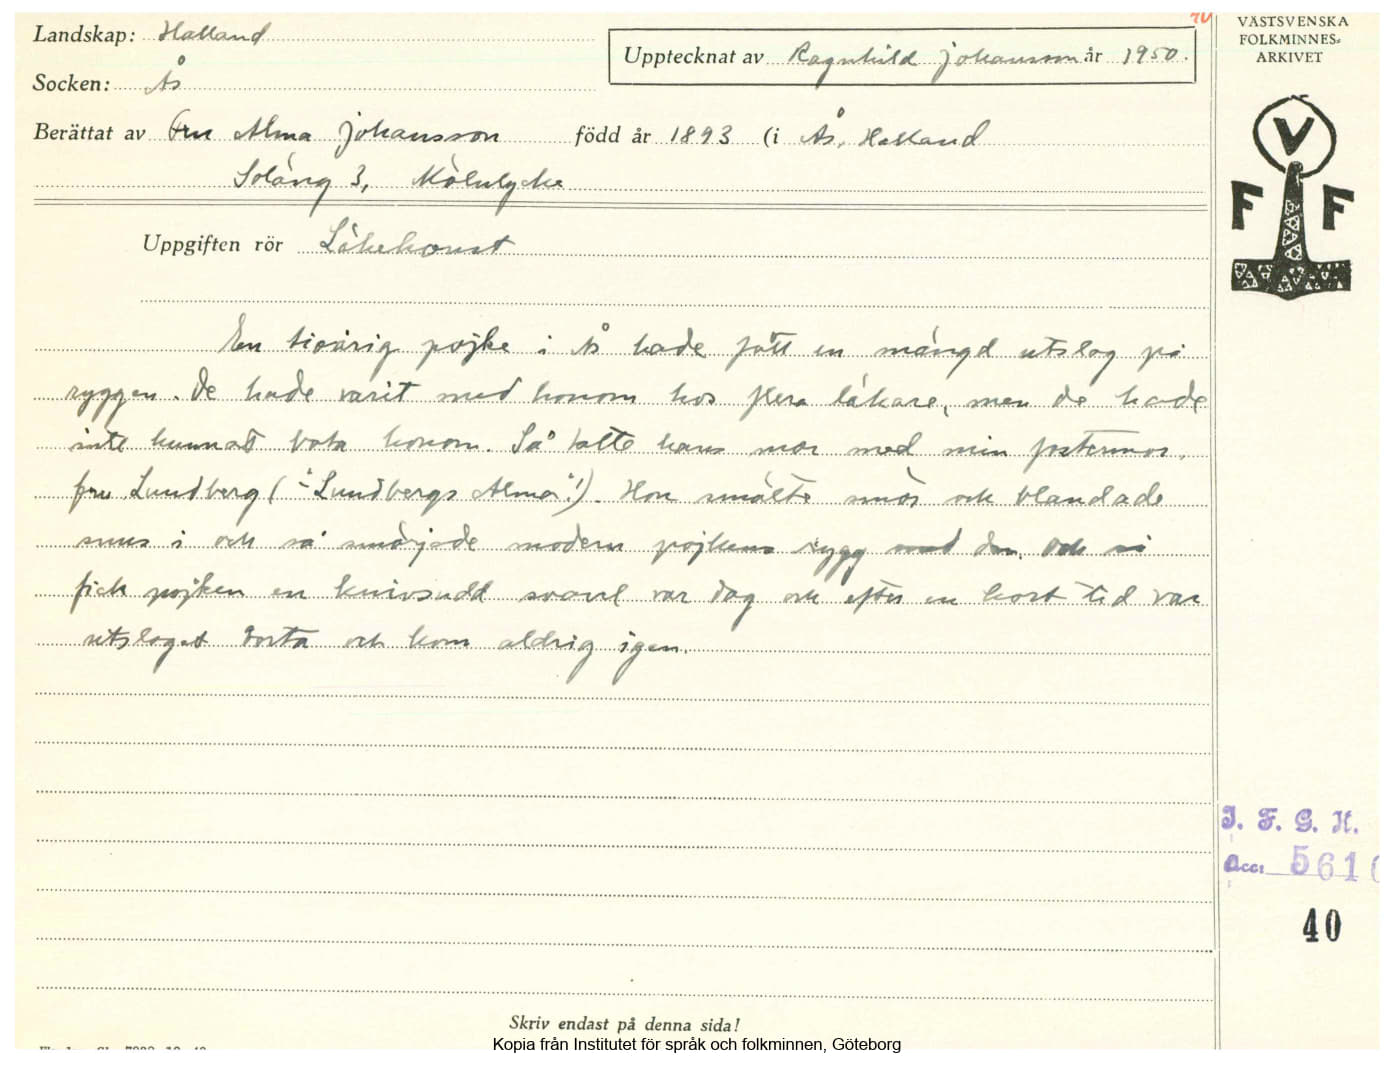 40
Landskap: Halland
Socken: Ås
Upptecknat av Ragnhild Johansson år 1950.
Berättat av Fru Alma Johansson född år 1893 (i Ås, Halland
Soläng 3, Mölnlycke
Uppgiften rör Läkekonst
En tioårig pojke i Ås hade fått en mängd utslag på
ryggen. De hade varit med honom hos flera läkare, men de hade
inte kunnat bota honom. Så talte hans mor med min fostermor,
fru Lundberg ("Lundbergs Alma"!). Hon smälte smör och blandade
snus i och så smörjde modern pojkens rygg med den. Och så
fick pojken en knivsudd svavel var dag och efter en kort tid var
utslaget borta och kom aldrig igen.
Skriv endast på denna sida!
Kopia från Institutet för språk och folkminnen, Göteborg
VÄSTSVENSKA
FOLKMINNES-
ARKIVET
V
F F
I. F. G. H.
Acc: 5610
40